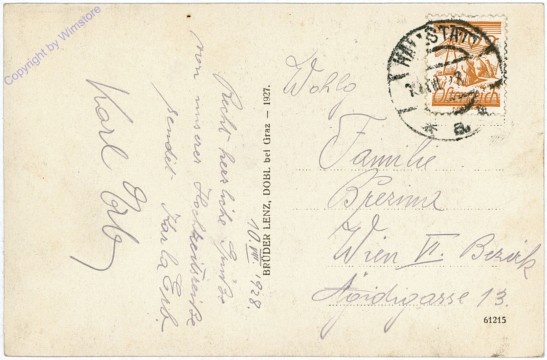 Copyright by Wimstore
10. VII. 1928.
Recht herzliche Grüße
von unserer Hochzeitsreise
sendet Karla Erb.
Karl Erb
BRÜDER LENZ, DOBL bei Graz — 1927.
HALLSTATT
* a *
Wohlg
Familie
Brezina
Wien VI. Bezirk
13.
61215